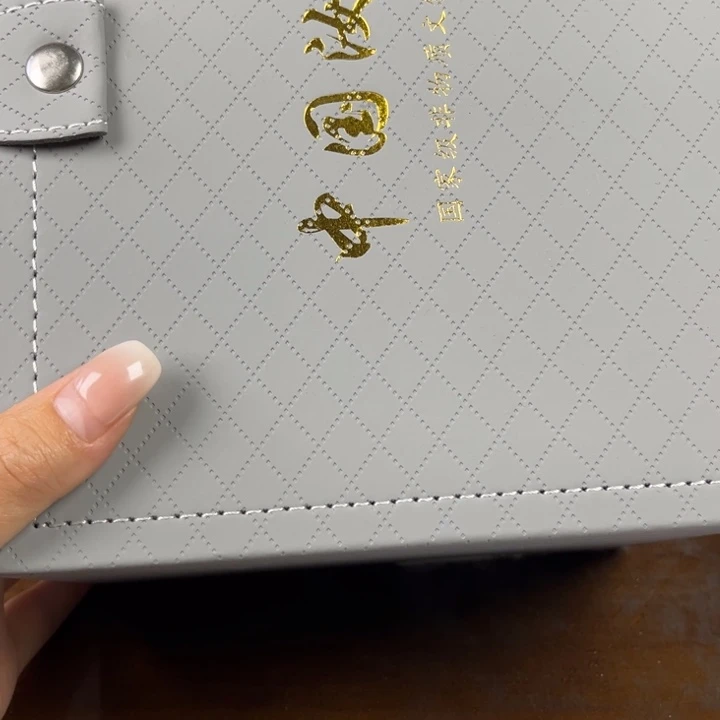 中国汝
国家级非物质文